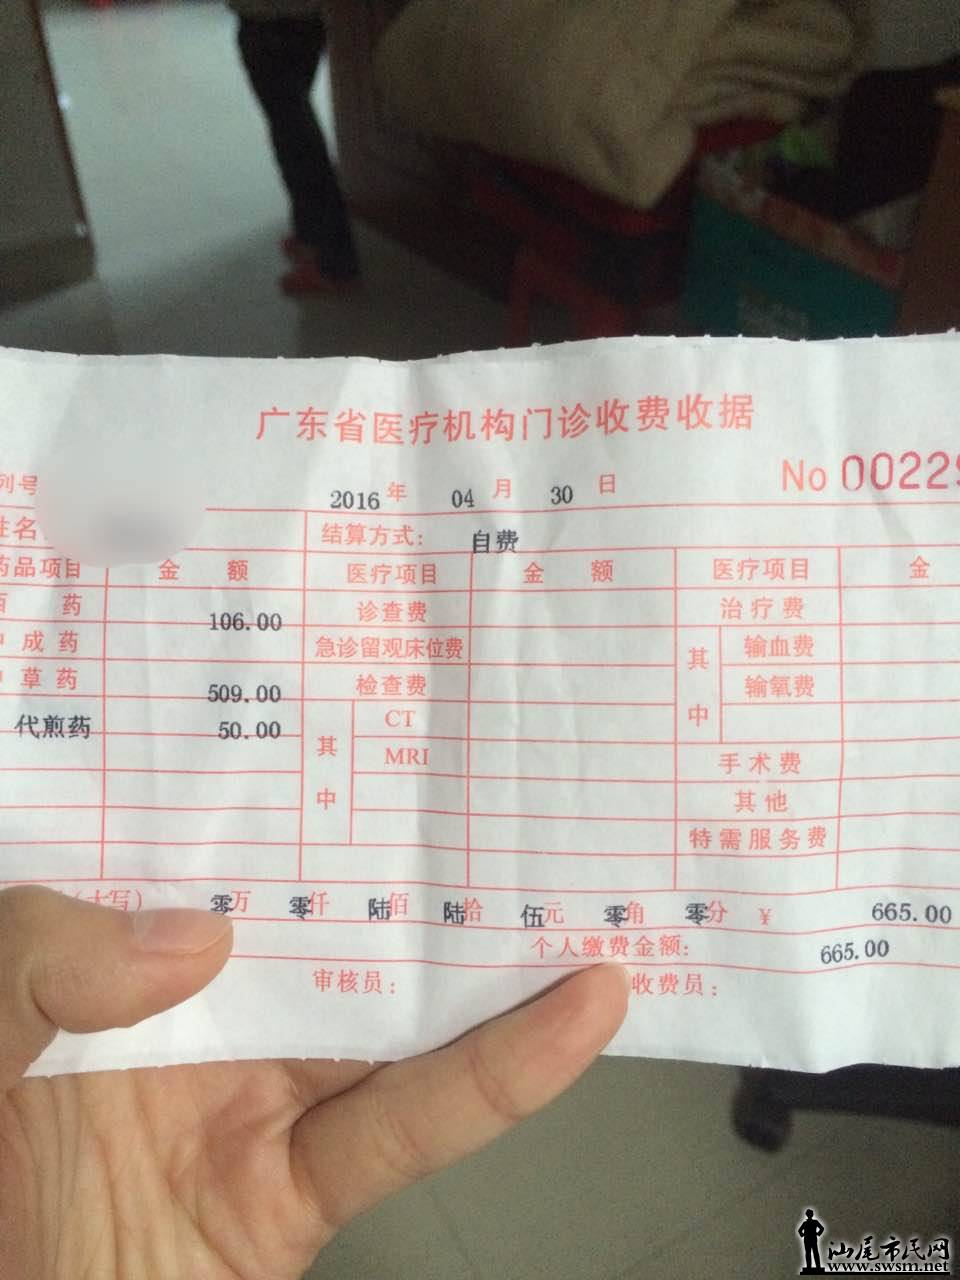 广东省医疗机构门诊收费收据
列号
2016 年 04 月 30 日
No 00229
姓名
结算方式： 自费
药品项目 金 额 医疗项目 金 额 医疗项目 金
西 药 106.00 诊查费 治疗费
中成药 急诊留观床位费 其中 输血费
中草药 509.00 检查费 输氧费
代煎药 50.00 其中 CT
MRI 手术费
其他
特需服务费
（大写） 零万 零仟 陆佰 陆拾 伍元 零角 零分 ￥ 665.00
个人缴费金额： 665.00
审核员： 收费员：
汕尾市民网
www.swsm.net